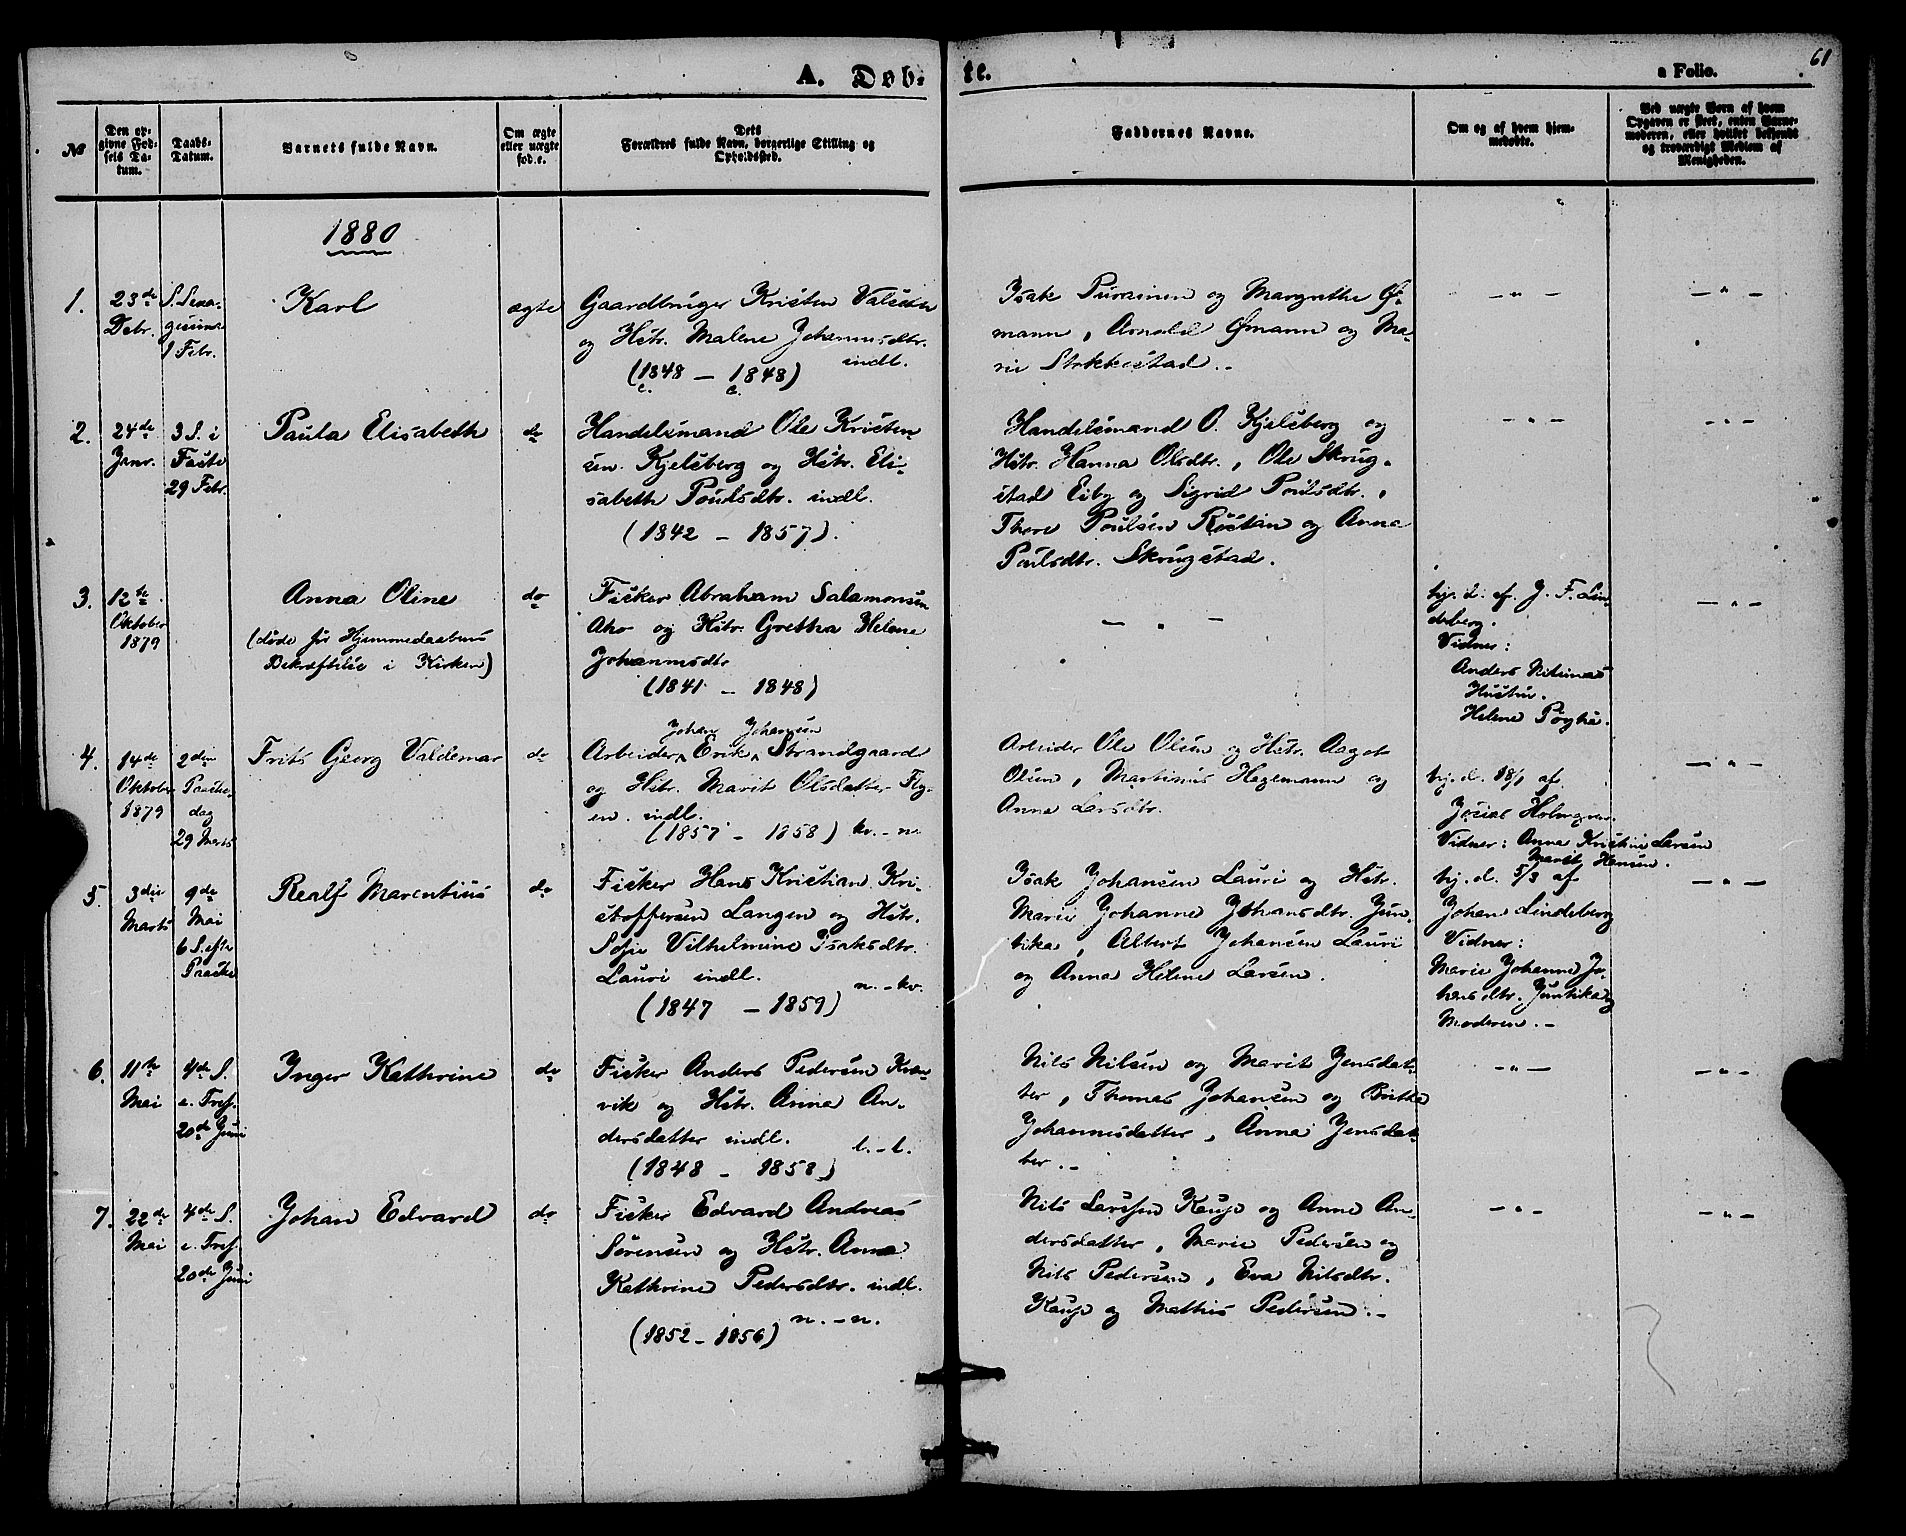 61
A. Døb-
te.
a Folio.
№
Den op-
givne Fød-
sels Da-
tum.
Daabs-
Datum.
Barnets fulde Navn.
Om ægte
eller uægte
fød.e.
Dets
Forældres fulde Navn, borgerlige Stilling og
Opholdssted.
Faddernes Navne.
Om og af hvem hjem-
medøbt.
Ved uægte Børn af hvem
Opgaven er skeet, enten Barne-
moderen, eller hvilket bekjendt
og troværdigt Medlem af
Menigheden.
1880
1.
23de
Debr.
S. Sexa-
gesima
1 Febr.
Karl
ægte
Gaardbruger Kristen
og Hstr. Malene Johannesdtr.
indl.
(1848 — 1848)
Isak Purainen og Margrethe Ø-
mann, Arnold Ømann og Ma-
rie Stokkestad.
— " —
— " —
2.
24de
Janr.
3 S. i
Faste
29 Febr.
Paula Elisabeth
do
Handelsmand Ole Kristen
sen Kjelsberg og Hstr. Eli-
sabeth Poulsdtr. indl.
(1842 — 1857)
Handelsmand O. Kjelsberg og
Hstr. Hanna Olsdtr., Ole Skrug-
stad Eiby og Sigrid Poulsdtr.,
Thore Poulsen Røstan og Anna
Poulsdtr. Skrugstad.
— " —
— " —
3.
12te
Oktober
1879
Anna Oline
(døde før Hjemmedaabens
Bekræftelse i Kirken)
do
Fisker Abraham Salamonsen
Aho og Hstr. Gretha Helene
Johannesdtr
(1841 — 1848)
— " —
hj. d. af J. F. Lin-
derberg.
Vidner:
Anders
Helene
— " —
4.
14de
Oktober
1879
2den
Paaske-
dag
29 Marts
Frits Georg Valdemar
do
Johan Johansen
Arbeider Erik Strandgaard
og Hstr. Marit Olsdatter Fly-
en. indl.
(1857 — 1858) kv. - n.
Arbeider Ole Olsen og Hstr. Aagot
Olsen, Martinus Hagemann og
Anna Larsdtr.
hj. d. 18/1 af
Josias Holmgren.
Vidner: Anna Kristine Larsen
Marit Hansen.
— " —
5.
3die
Marts
9de
Mai
6 S. efter
Paaske
Realf Marentius
do
Fisker Hans Kristian Kri-
stoffersen Langen og Hstr.
Sofie Vilhelmine Isaksdtr.
Lauri indl.
n. - kv.
(1847 — 1859)
Isak Johansen Lauri og Hstr.
Marie Johanne Johansdtr. Jun-
tika, Albert Johansen Lauri
og Anna Helene Larsen.
hj. d. 5/3 af
Johan Lindeberg
Vidner:
Marie Johanne Jo-
hansdtr. Juntika og
Moderen. —
— " —
6.
11te
Mai
4de S.
e. Tref.
20de Juni
Inger Kathrine
do
Fisker Anders Pedersen Kvæn-
vik og Hstr. Anna An-
dersdatter indl.
l. - l.
(1848 — 1858)
Nils Nilsen og Marit Jensdat-
ter, Thomas Johansen og Britha
Johannesdatter, Anna Jensdat-
ter. —
— " —
— " —
7.
22de
Mai
4de S.
e. Tref.
20de Juni
Johan Edvard
do
Fisker Edvard Andreas
Sørensen og Hstr. Anna
Kathrine Pedersdtr. indl.
n. - n.
(1852 — 1856)
Nils Larssen Kaup og Anne An-
dersdatter, Marie Pedersen og
Nils Pedersen, Eva Nilsdtr.
Kaup og Mathis Pedersen. —
— " —
— " —